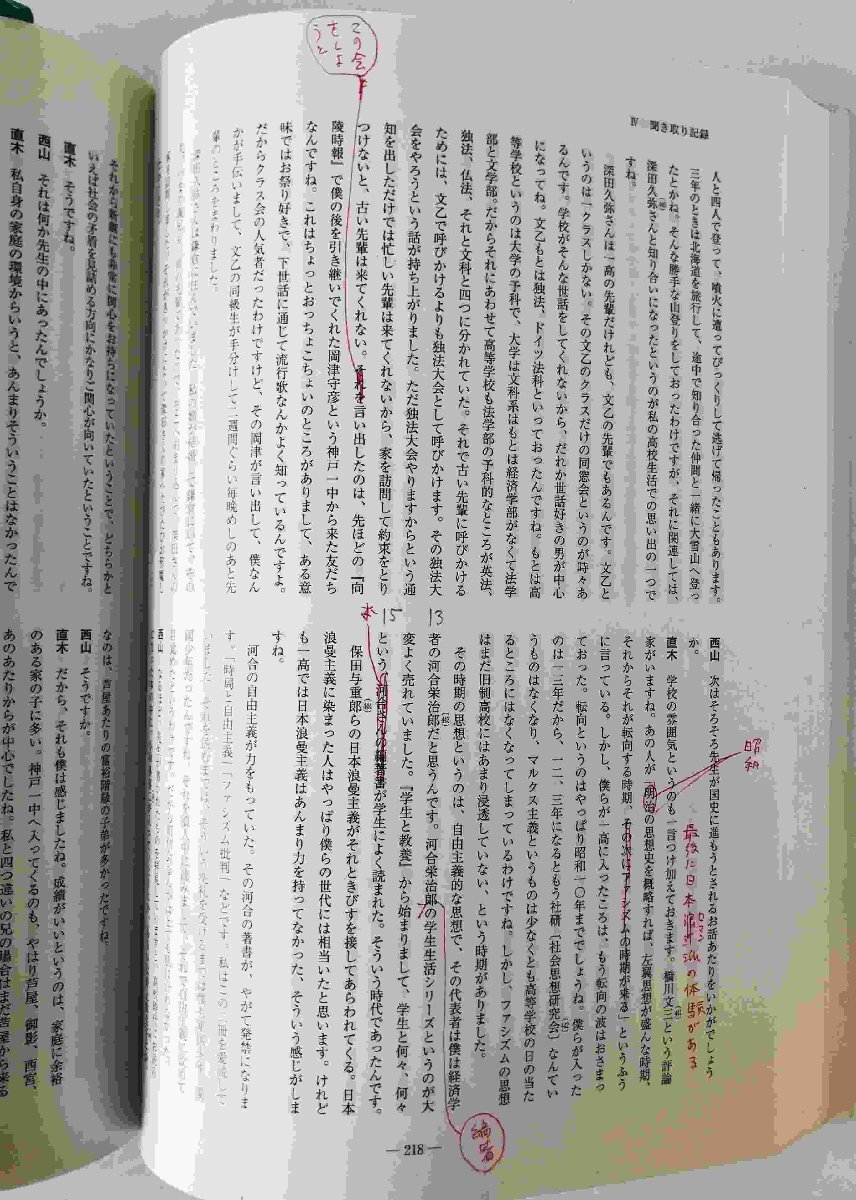 Ⅳ 聞き取り記録
人と四人で登って、噴火に遭ってびっくりして逃げて帰ったこともあります。
三年のときは北海道を旅行して、途中で知り合った仲間と一緒に大雪山へ登っ
たとかね。そんな勝手な山登りをしておったわけですが、それに関連しては、
深田久弥さんと知り合いになったというのが私の高校生活での思い出の一つで
すね。
深田久弥さんは一高の先輩だけれども、文乙の先輩でもあるんです。文乙と
いうのは一クラスしかない。その文乙のクラスだけの同窓会というのが時々あ
るんです。学校がそんな世話をしてくれないから、だれか世話好きの男が中心
になってね。文乙もとは独法、ドイツ法科といっておったんですね。もとは高
等学校というのは大学の予科で、大学は文科系はもとは経済学部がなくて法学
部と文学部。だからそれにあわせて高等学校も法学部の予科的なところが英法、
独法、仏法、それと文科と四つに分かれていた。それで古い先輩に呼びかける
ためには、文乙で呼びかけるよりも独法大会として呼びかけます。その独法大
会をやろうという話が持ち上がりました。ただ独法大会やりますからという通
知を出しただけでは忙しい先輩は来てくれないから、家を訪問して約束をとり
つけないと、古い先輩は来てくれない。それを言い出したのは、先ほどの『向
陵時報』で僕の後を引き継いでくれた岡津守彦という神戸一中から来た友だち
なんですね。これはちょっとおっちょこちょいのところがありまして、ある意
味ではお祭り好きで、下世話に通じて流行歌なんかよく知っているんですよ。
だからクラス会の人気者だったわけですけど、その岡津が言い出して、僕なん
かが手伝いまして、文乙の同級生が手分けして二週間ぐらい毎晩めしのあと先
輩のところをまわりました。
この会
をしよ
うと
西山 次はそろそろ先生が国史に進もうとされるお話あたりをいかがでしょう
か。
直木 学校の雰囲気というのも一言つけ加えておきます。橋川文三という評論
家がいますね。あの人が「明治の思想史を概略すれば、左翼思想が盛んな時期、
それからそれが転向する時期、その次はファシズムの時期が来る」というふう
に言っている。しかし、僕らが一高に入ったころは、もう転向の波はおさまっ
ておった。転向というのはやっぱり昭和一〇年まででしょうね。僕らが入った
のは一三年だから、一二、三年になるともう社研〔社会思想研究会〕なんてい
うものはなくなり、マルクス主義というものは少なくとも高等学校の日の当た
るところにはなくなってしまっているわけですね。しかし、ファシズムの思想
はまだ旧制高校にはあまり浸透していない、という時期がありました。
その時期の思想というのは、自由主義的な思想で、その代表者は僕は経済学
者の河合栄治郎だと思うんです。河合栄治郎の学生生活シリーズというのが大
変よく売れていました。『学生と教養』から始まりまして、学生と何々、何々
という、河合さんの編著書が学生によく読まれた。そういう時代であったんです。
保田与重郎らの日本浪曼主義がそれときびすを接してあらわれてくる。日本
浪曼主義に染まった人はやっぱり僕らの世代には相当いたと思います。けれど
も一高では日本浪曼主義はあんまり力を持ってなかった、そういう感じがしま
すね。
河合の自由主義が力をもっていた。その河合の著書が、やがて発禁になりま
す。『時局と自由主義』『ファシズム批判』などです。
昭和
最後に日本
の体験がある
13
15
編著
― 218 ―
それから新劇にも非常に関心をお持ちになっていたということで、どちらかと
いえば社会の矛盾を見詰める方向にかなりご関心が向いていたということですね。
直木 そうですね。
西山 それは何か先生の中にあったんでしょうか。
直木 私自身の家庭の環境からいうと、あんまりそういうことはなかったんで
なのは、芦屋あたりの富裕階級の子弟が多かったですね。
西山 そうですか。
直木 だから、それも僕は感じましたね。成績がいいというのは、家庭に余裕
のある家の子に多い。神戸一中へ入ってくるのも、やはり芦屋、御影、西宮、
あのあたりからが中心でしたね。私と四つ違いの兄の場合はまだ芦屋から来る